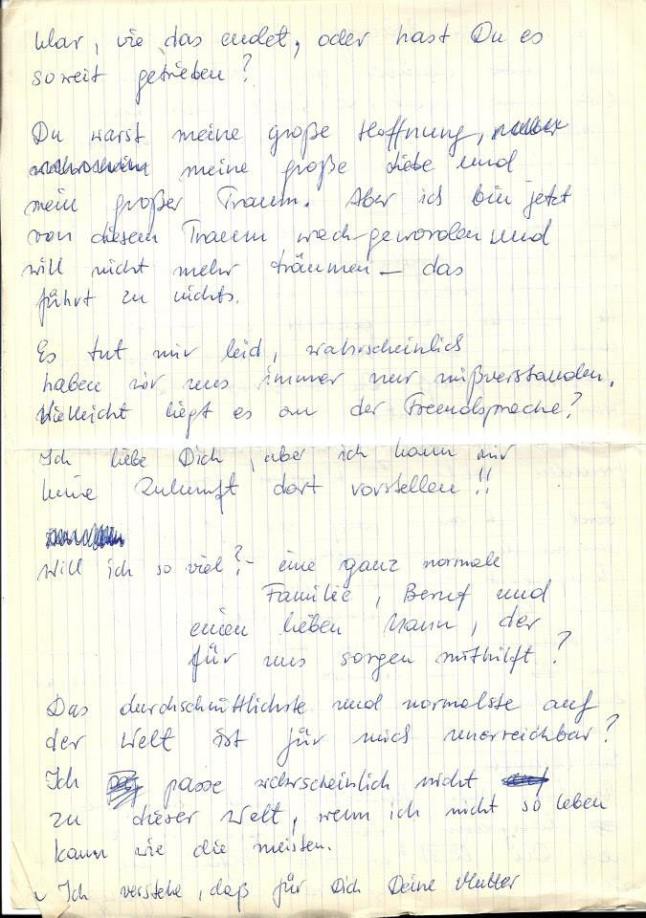 klar, wie das endet, oder hast Du es
soweit getrieben?
Du warst meine große Hoffnung,
meine große Liebe und
mein großer Traum. Aber ich bin jetzt
von diesem Traum wach geworden und
will nicht mehr träumen – das
führt zu nichts.
Es tut mir leid, wahrscheinlich
haben wir uns immer nur mißverstanden.
Vielleicht liegt es an der Fremdsprache?
Ich liebe Dich, aber ich kann mir
keine Zukunft dort vorstellen!!
Will ich so viel? – eine ganz normale
Familie, Beruf und
einen lieben Mann, der
für uns sorgen mithilft?
Das durchschnittlichste und normalste auf
der Welt ist für mich unerreichbar?
Ich passe wahrscheinlich nicht
zu dieser Welt, wenn ich nicht so leben
kann wie die meisten.
Ich verstehe, daß für Dich Deine Mutter